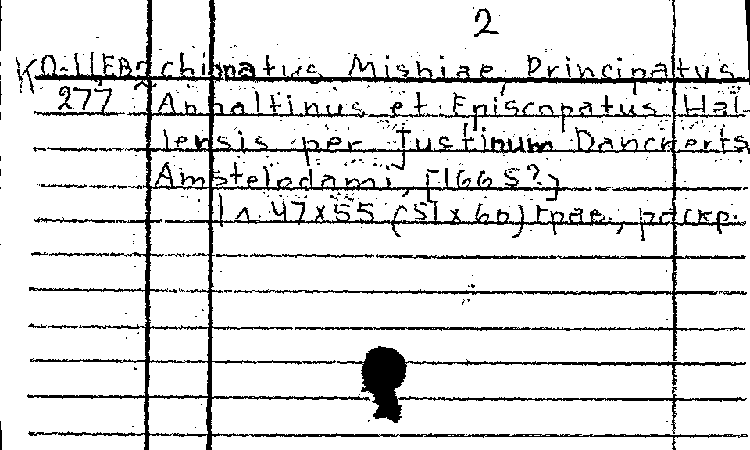 2
Ко-ЦЕВ2 chionatus Misniae, Principatus
277 Anhaltinus et Episcopatus Hal-
lensis per Justinum Danckerts
Amstelodami, [1665?]
1 л. 47x55 (51x60) грав., раскр.